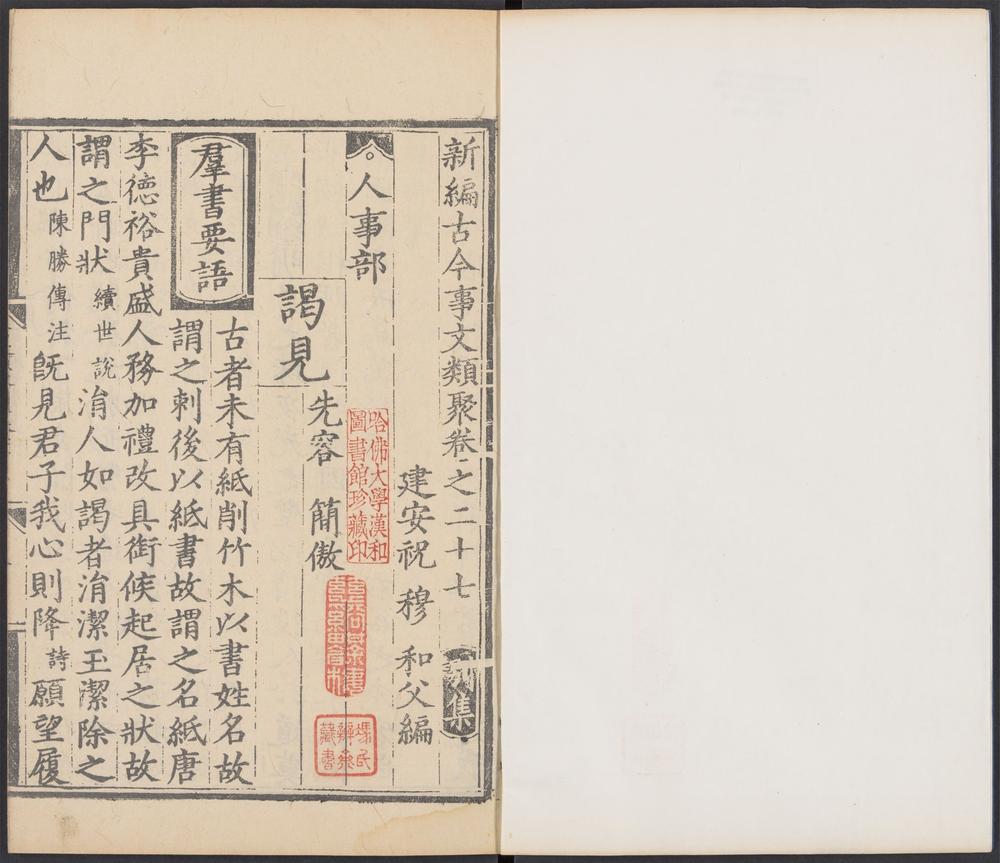 新編古今事文類聚卷之二十七 集
建安祝 穆 和父編
人事部
哈佛大學漢和
圖書館珍藏印
謁見
先容 簡傲
羣書要語
古者未有紙削竹木以書姓名故
謂之刺後以紙書故謂之名紙唐
李德裕貴盛人務加禮改具銜候起居之狀故
謂之門狀 續世說 涓人如謁者涓潔玉潔除之
人也 陳勝傳注 旣見君子我心則降 詩 願望履